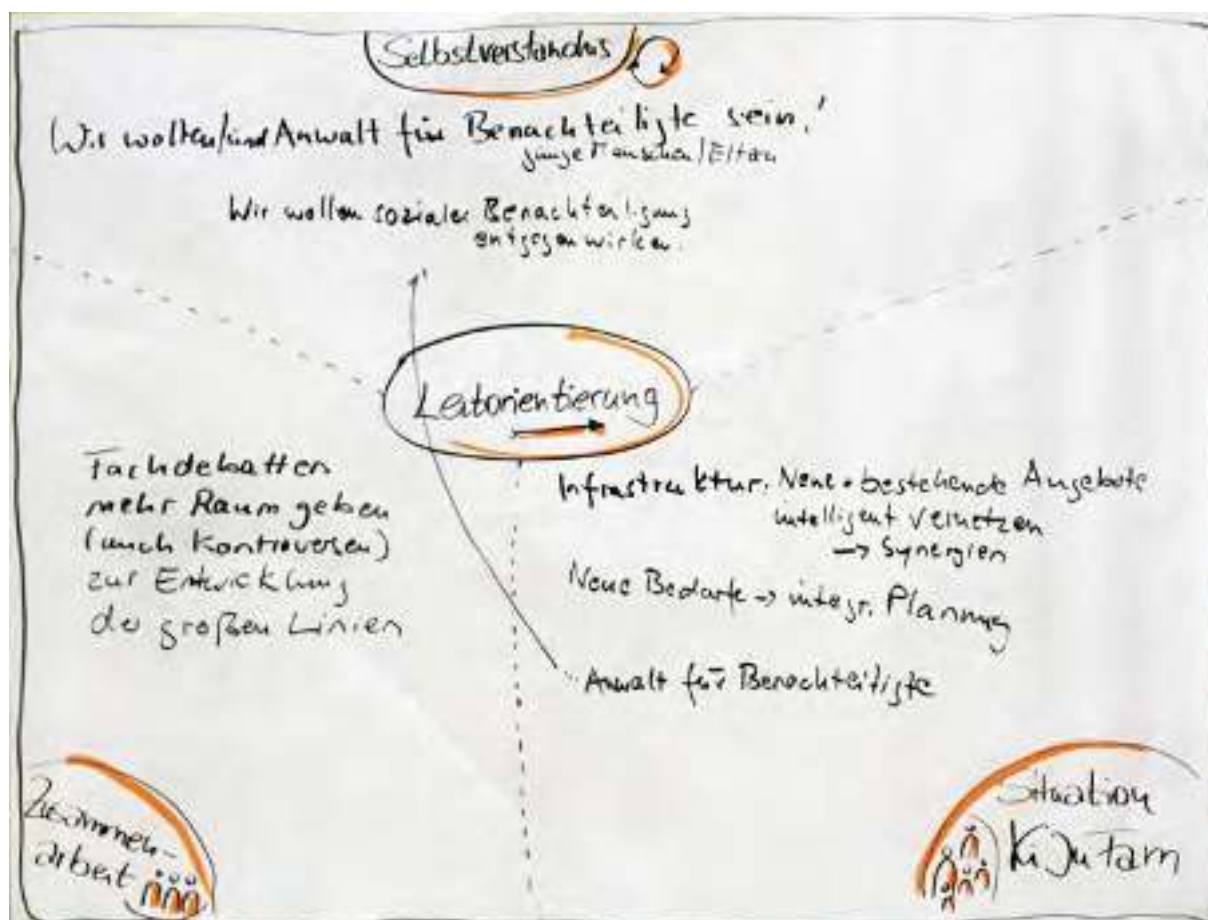 Selbstverständnis
Wir wollen/sind Anwalt für Benachteiligte sein!
junge Menschen/Eltern
Wir wollen sozialer Benachteiligung
entgegenwirken.
Leitorientierung
Fachdebatten
mehr Raum geben
(auch Kontroversen)
zur Entwicklung
der großen Linien
Infrastruktur. Neue + bestehende Angebote
intelligent vernetzen
→ Synergien
Neue Bedarfe → integr. Planung
Anwalt für Benachteiligte
Zusammen-
arbeit
Situation
KiJuFam